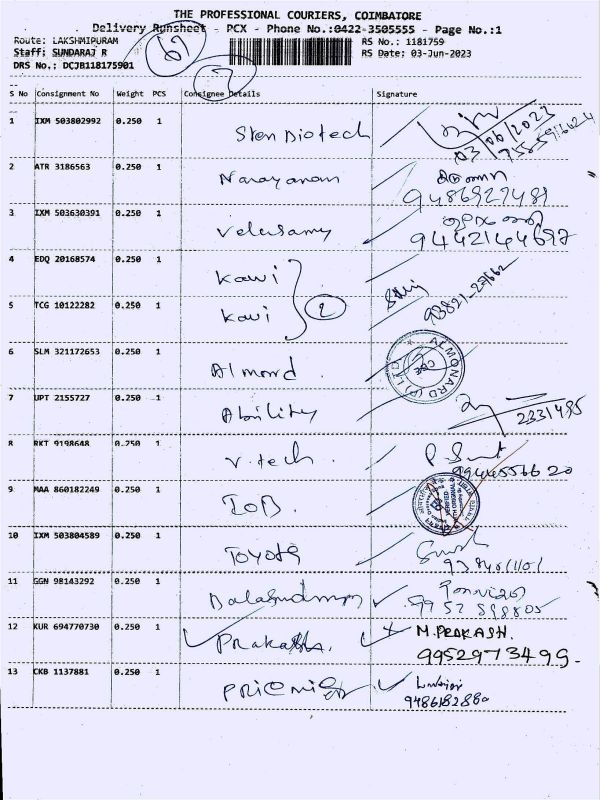 THE PROFESSIONAL COURIERS, COIMBATORE
Delivery Runsheet - PCX - Phone No.:0422-3505555 - Page No.:1
Route: LAKSHMIPURAM RS No.: 1181759
Staff: SUNDARAJ R RS Date: 03-Jun-2023
DRS No.: DCJB118175901
67
7
S No Consignment No Weight PCS Consignee Details Signature
1 IXM 503802992 0.250 1 Sten Biotech
03/06/2023
2 ATR 3186563 0.250 1 Narayanan
9486927481
3 IXM 503630391 0.250 1 Velusamy
9442144697
4 EDQ 20168574 0.250 1 Kavi
2
5 TCG 10122282 0.250 1 Kavi
93821-27662
6 SLM 321172653 0.250 1 Almond ALMONARD (P) LTD CBE
7 UPT 2155727 0.250 1 Ability
2331485
8 RKT 9198648 0.250 1 V.tech
9944556620
9 MAA 860182249 0.250 1 IOB
10 IXM 503804589 0.250 1 TOYOTA
11 GGN 98143292 0.250 1
9952598805
12 KUR 694770730 0.250 1 Prakash. M.PRAKASH.
9952973499-
13 CKB 1137881 0.250 1
9486182880